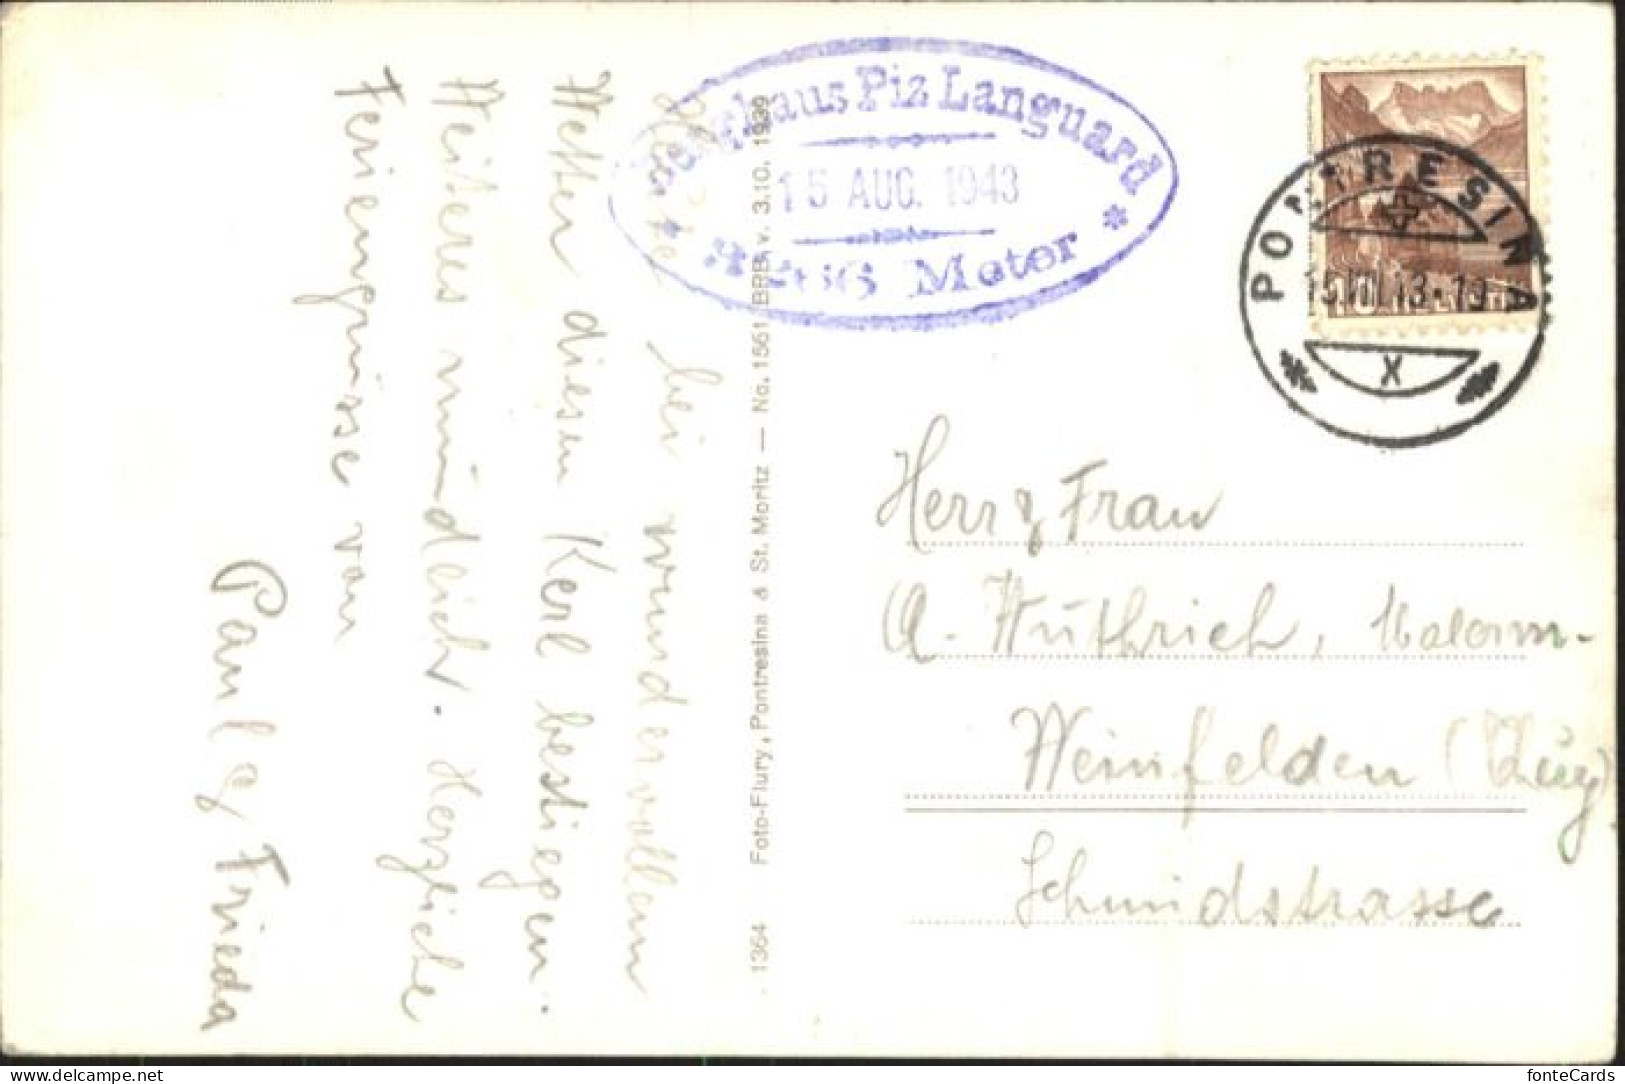 Heute bei wundervollem
Wetter diesen Kerl bestiegen.
Weiteres mündlich. Herzliche
Feriengrüsse von
Paul & Frieda
1364 Foto-Flury, Pontresina & St. Moritz — No. 1561 BRB v. 3.10. 1939
Berghaus Piz Languard
15 AUG. 1943
* Meter *
PONTRESINA
15.VIII.43-19
X
Herr & Frau
A. Wüthrich,
Weinfelden (Thurg)
Schmidstrasse
fonteCards